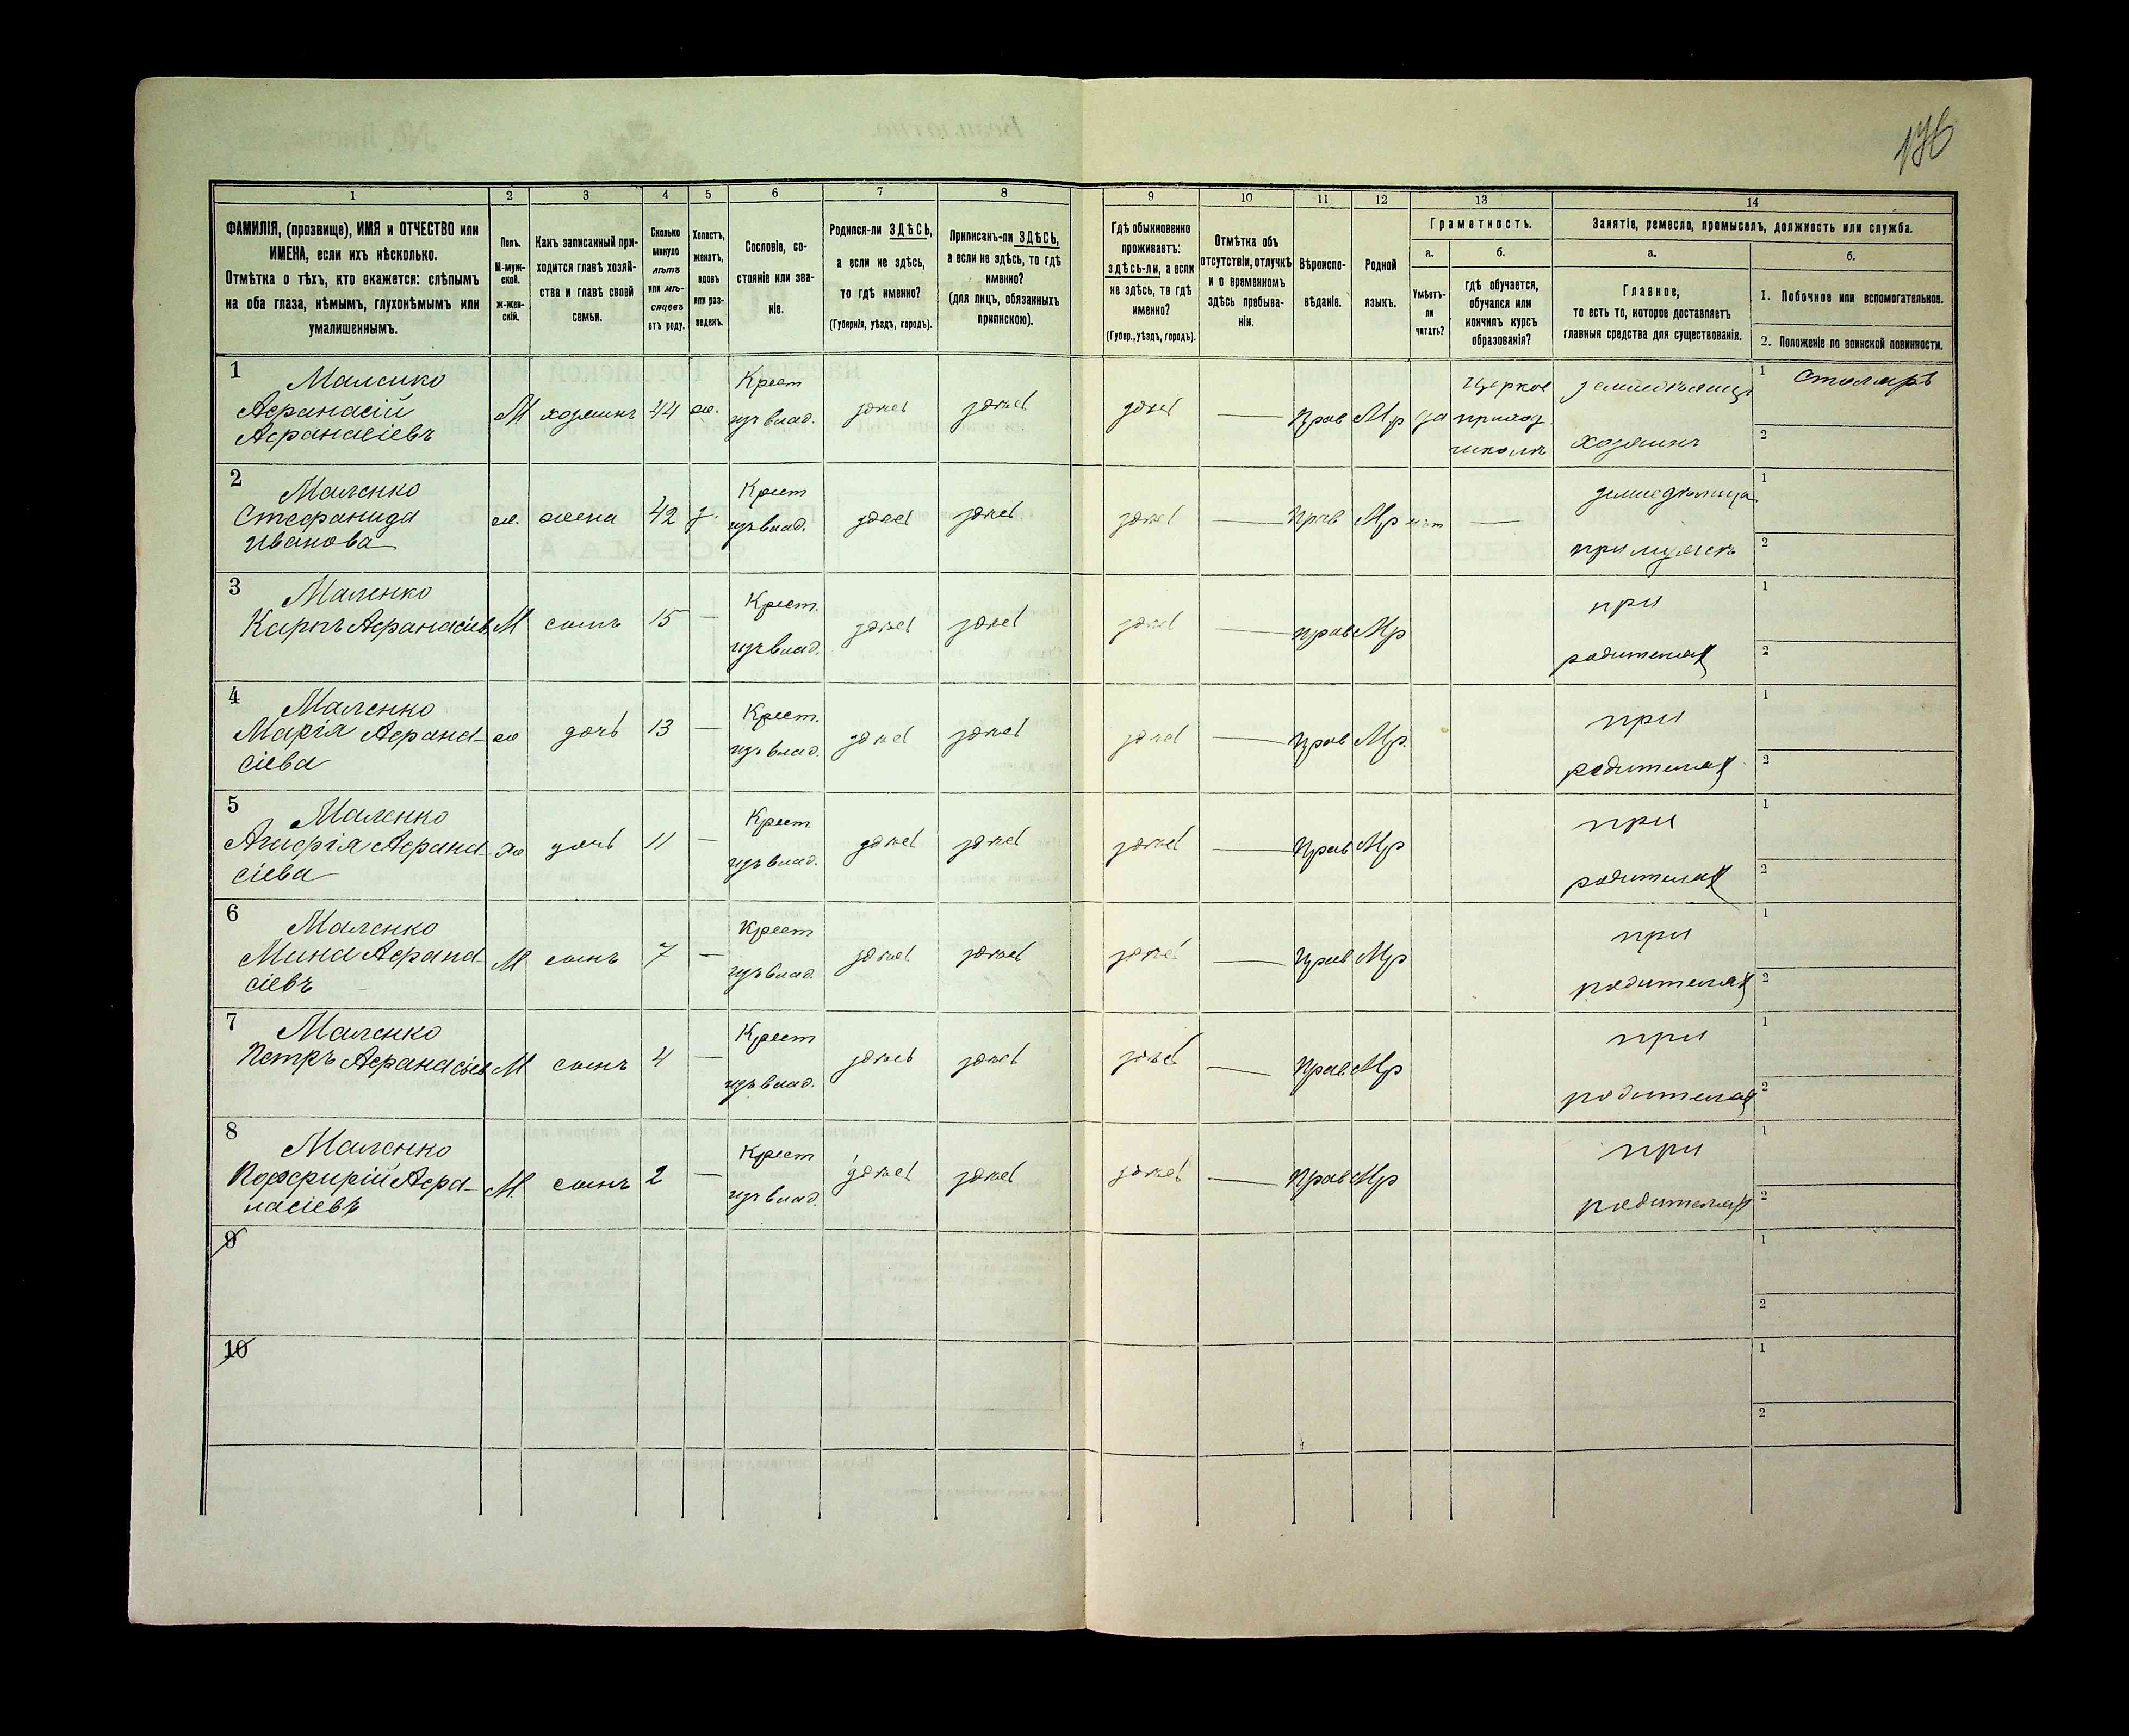 176
1
2
3
4
5
6
7
8
9
10
11
12
13
14
ФАМИЛІЯ, (прозвище), ИМЯ и ОТЧЕСТВО или
ИМЕНА, если ихъ нѣсколько.
Отмѣтка о тѣхъ, кто окажется: слѣпымъ
на оба глаза, нѣмымъ, глухонѣмымъ или
умалишеннымъ.
Полъ.
М-муж-
ской.
ж-жен-
скій.
Какъ записанный при-
ходится главѣ хозяй-
ства и главѣ своей
семьи.
Сколько
минуло
лѣтъ
или мѣ-
сяцевъ
отъ роду.
Холостъ,
женатъ,
вдовъ
или раз-
веденъ.
Сословіе, со-
стояніе или зва-
ніе.
Родился-ли ЗДѢСЬ,
а если не здѣсь,
то гдѣ именно?
(Губернія, уѣздъ, городъ).
Приписанъ-ли ЗДѢСЬ,
а если не здѣсь, то гдѣ
именно?
(для лицъ, обязанныхъ
припискою).
Гдѣ обыкновенно
проживаетъ:
здѣсь-ли, а если
не здѣсь, то гдѣ
именно?
(Губер., уѣздъ, городъ).
Отмѣтка объ
отсутствіи, отлучкѣ
и о временномъ
здѣсь пребыва-
ніи.
Вѣроиспо-
вѣданіе.
Родной
языкъ.
Грамотность.
а.
Умѣетъ-
ли
читать?
б.
гдѣ обучается,
обучался или
кончилъ курсъ
образованія?
Занятіе, ремесло, промыселъ, должность или служба.
а.
Главное,
то есть то, которое доставляетъ
главныя средства для существованія.
б.
1. Побочное или вспомогательное.
2. Положеніе по воинской повинности.
1
Маленко
Афанасій
Афанасіевъ
М
хозяинъ
44
ж.
Крест
изъ влад.
здѣсь
здѣсь
здѣсь
—
Прав
Мр
да
церков
приход
школѣ
хозяинъ
1
Столяръ
2
2
Маленко
Стефанида
Иванова
ж.
жена
42
з.
Крест
изъ влад.
здѣсь
здѣсь
здѣсь
—
Прав
Мр
нѣт
—
земледѣлица
при мужѣ
1
2
3
Маленко
Карпъ Афанасіев
М
сынъ
15
—
Крест.
изъ влад.
здѣсь
здѣсь
здѣсь
—
прав
Мр
при
родителях
1
2
4
Маленко
Марія Афана-
сіева
ж
дочь
13
—
Крест.
изъ влад.
здѣсь
здѣсь
здѣсь
—
Прав
Мр.
при
родителях
1
2
5
Маленко
Агафія Афана
сіева
ж
дочь
11
—
Крест
изъ влад.
здѣсь
здѣсь
здѣсь
—
Прав
Мр
при
родителях
1
2
6
Маленко
Мина Афана
сіевъ
М
сынъ
7
—
Крест
изъ влад.
здѣсь
здѣсь
здѣсь
—
Прав
Мр
при
родителях
1
2
7
Маленко
Петръ Афанасіев
М
сынъ
4
—
Крест
изъ влад.
здѣсь
здѣсь
здѣсь
—
Прав.
Мр
при
родителях
1
2
8
Маленко
Порфирій Афа-
насіевъ
М
сынъ
2
—
Крест
изъ влад.
здѣсь
здѣсь
здѣсь
—
Прав
Мр
при
родителях
1
2
9
1
2
10
1
2